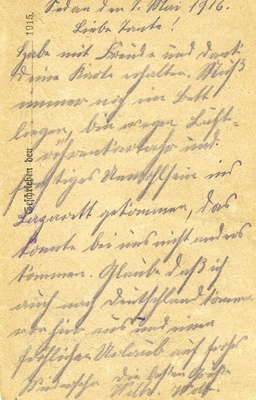 Sedan den 1. Mai 1916.
Liebe Tante!
Habe mit Freude und Dank
deine Karte erhalten. Muß
immer noch im Bett
liegen, bin wegen Luft-
röhrenkatarrh und
Unwohlsein ins
Lazarett gekommen, das
konnte bei uns nicht anders
kommen. Glaube daß ich
auch nach Deutschland komme
von hier aus und einen
fröhlichen Urlaub auf frohes
Wiedersehn. Die besten Grüße
Geschrieben den 1915.